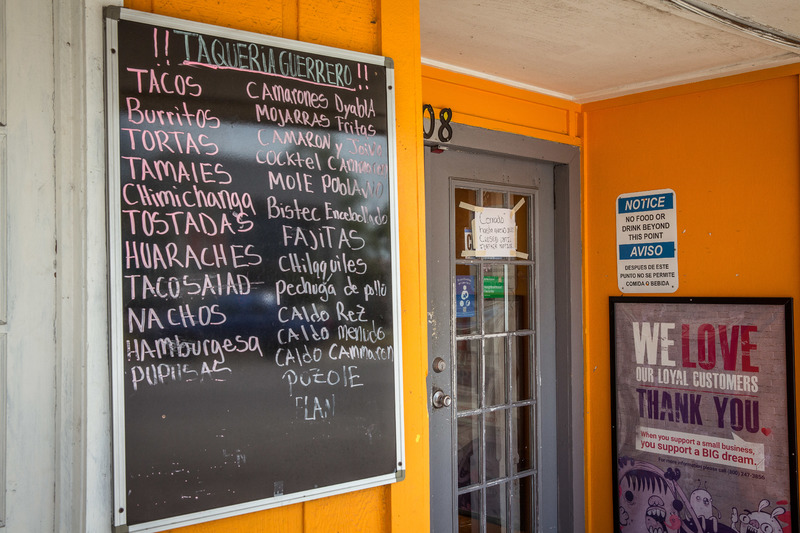 !! TAQUERIA GUERRERO !!
TACOS
Burritos
TORTAS
TAMALES
Chimichanga
TOSTADAS
HUARACHES
TACOSALAD
NACHOS
HAmburgesa
PUPUSAS
CAMARONES DyablA
MOJARRAS Fritas
CAMARON y
COCKtel
MOLE PoblANO
Bistec Encebollado
FAJITAS
Chilaquiles
pechuga de pollo
CAlDo REZ
CAlDo menudo
CAlDo CAMMARON
POZOlE
FLAN
08
Cerrado
NOTICE
NO FOOD OR
DRINK BEYOND
THIS POINT
AVISO
DESPUES DE ESTE
PUNTO NO SE PERMITE
COMIDA O BEBIDA
WE LOVE
OUR LOYAL CUSTOMERS
THANK YOU.
When you support a small business,
you support a BIG dream.
For more information please call